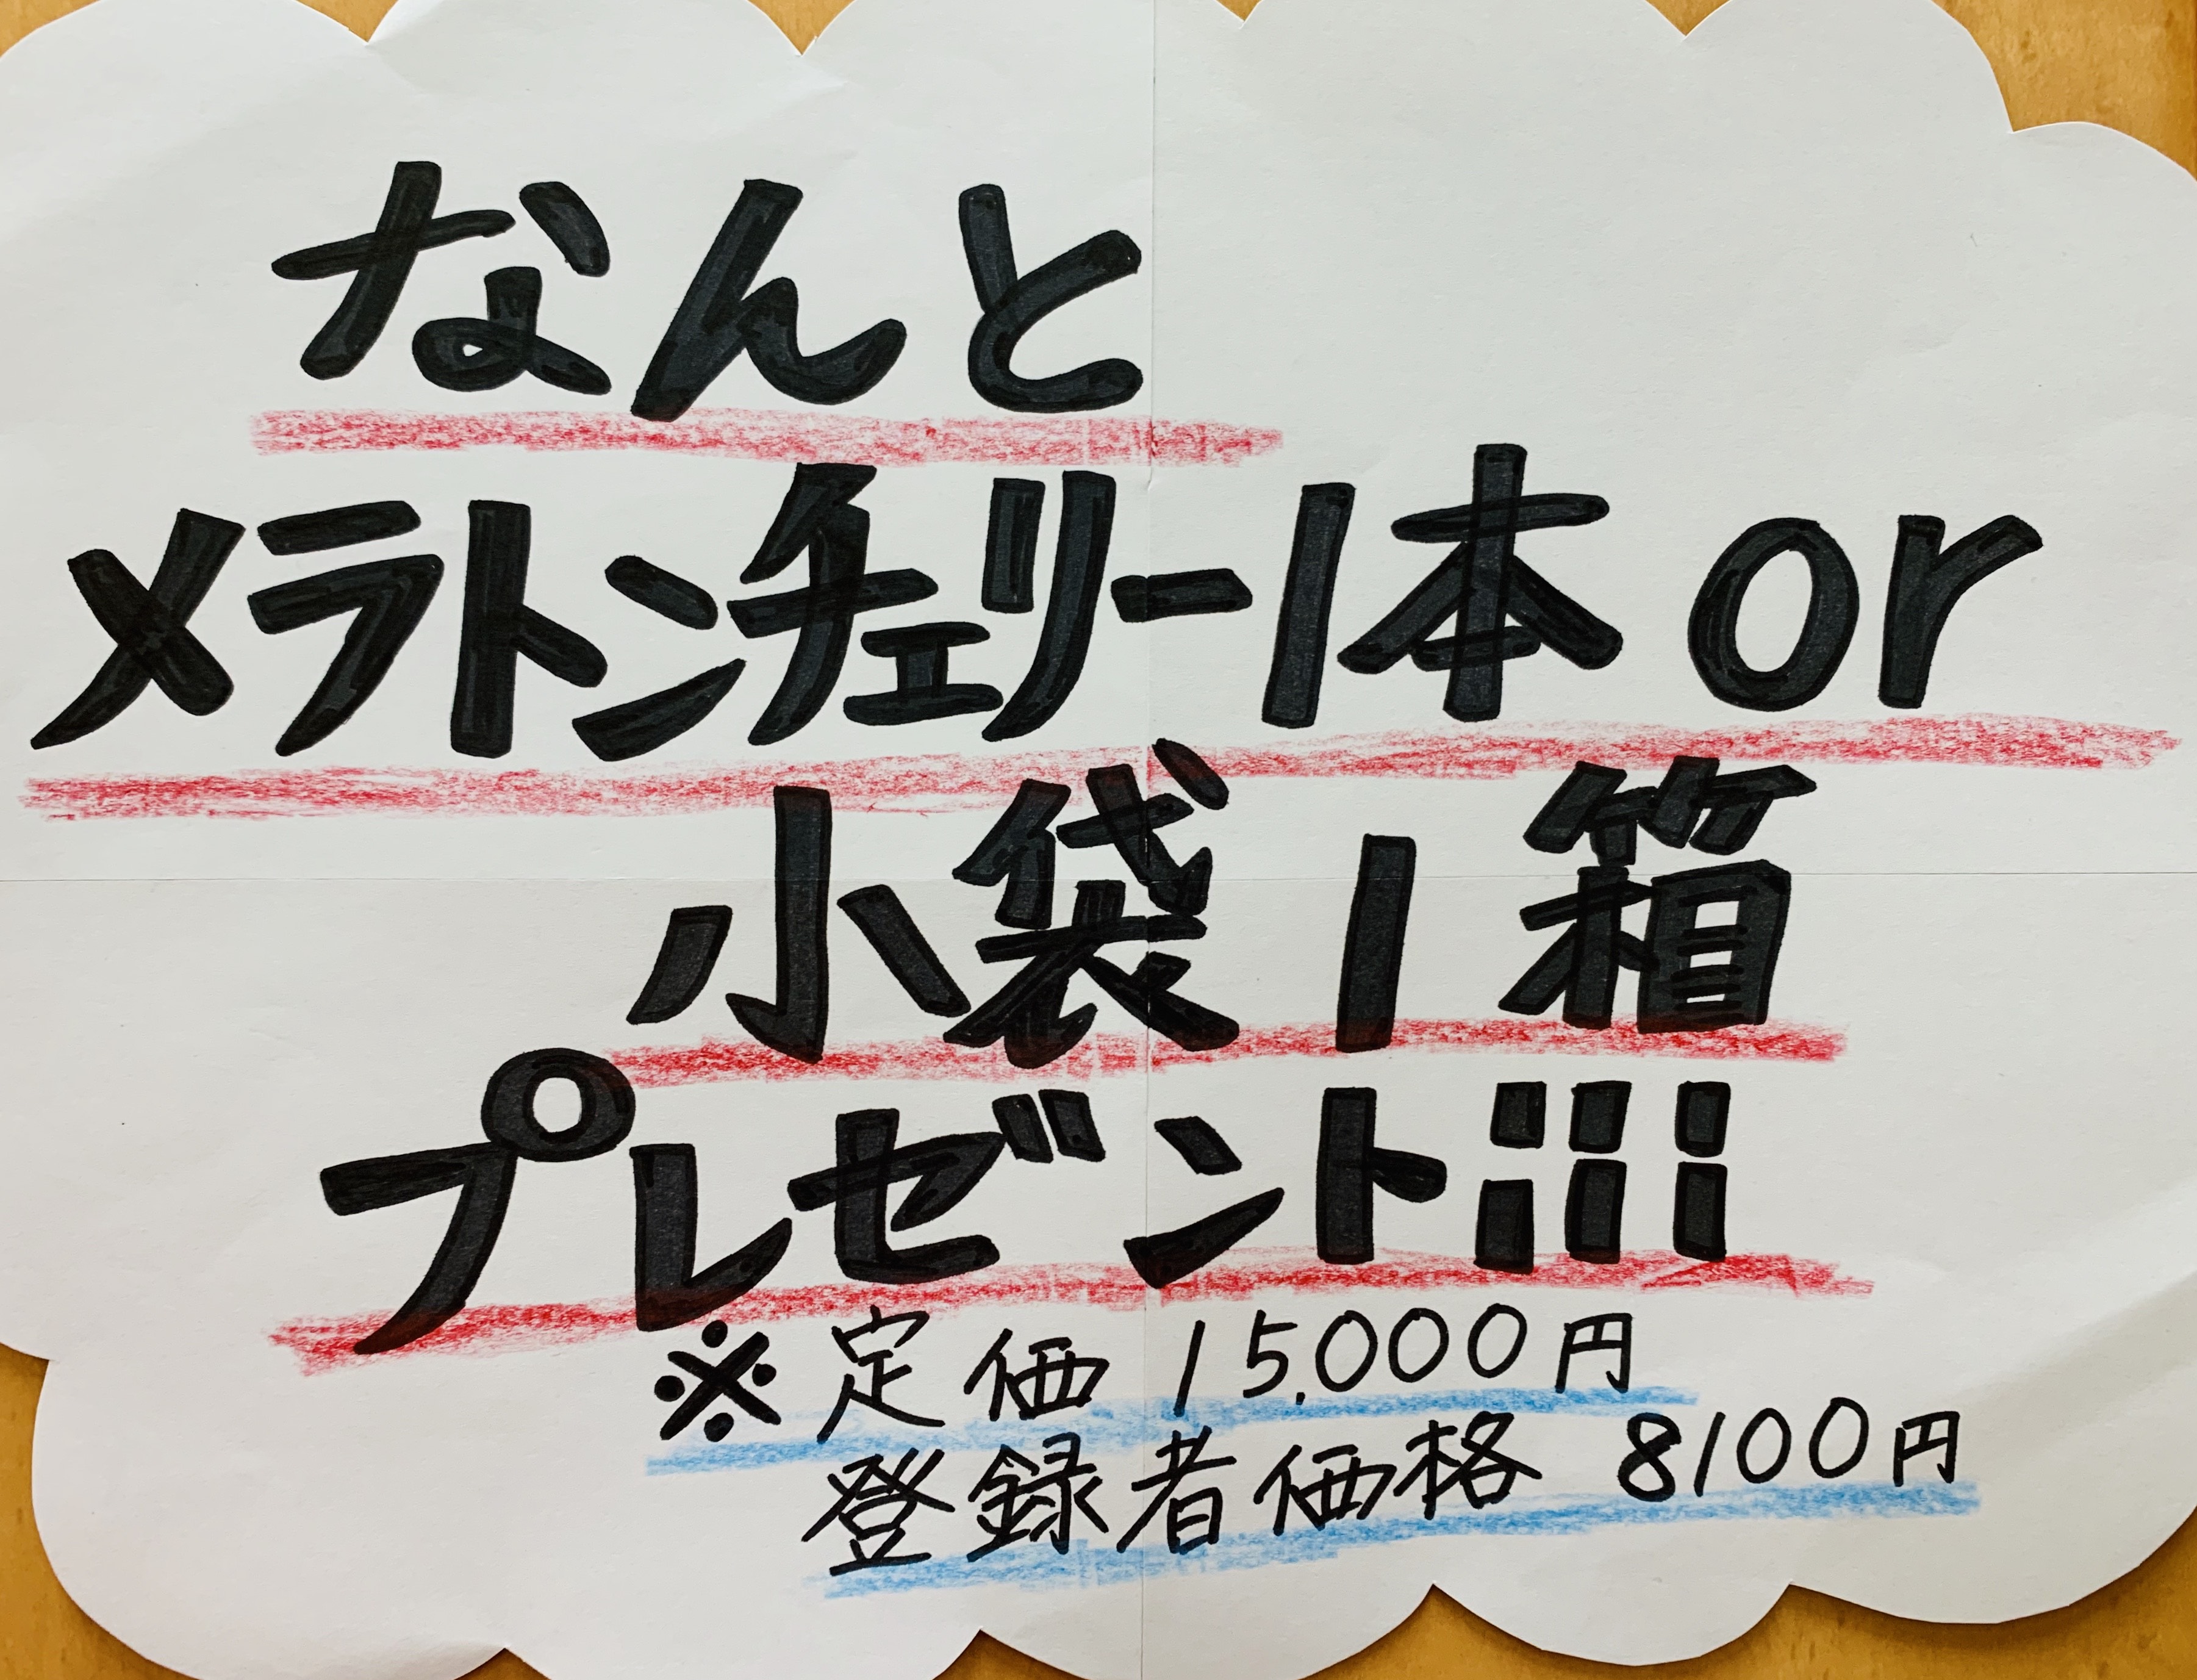 なんと
メラトンチェリー1本 or
小袋 1 箱
プレゼント!!!
※定価 15,000円
登録者価格 8100円